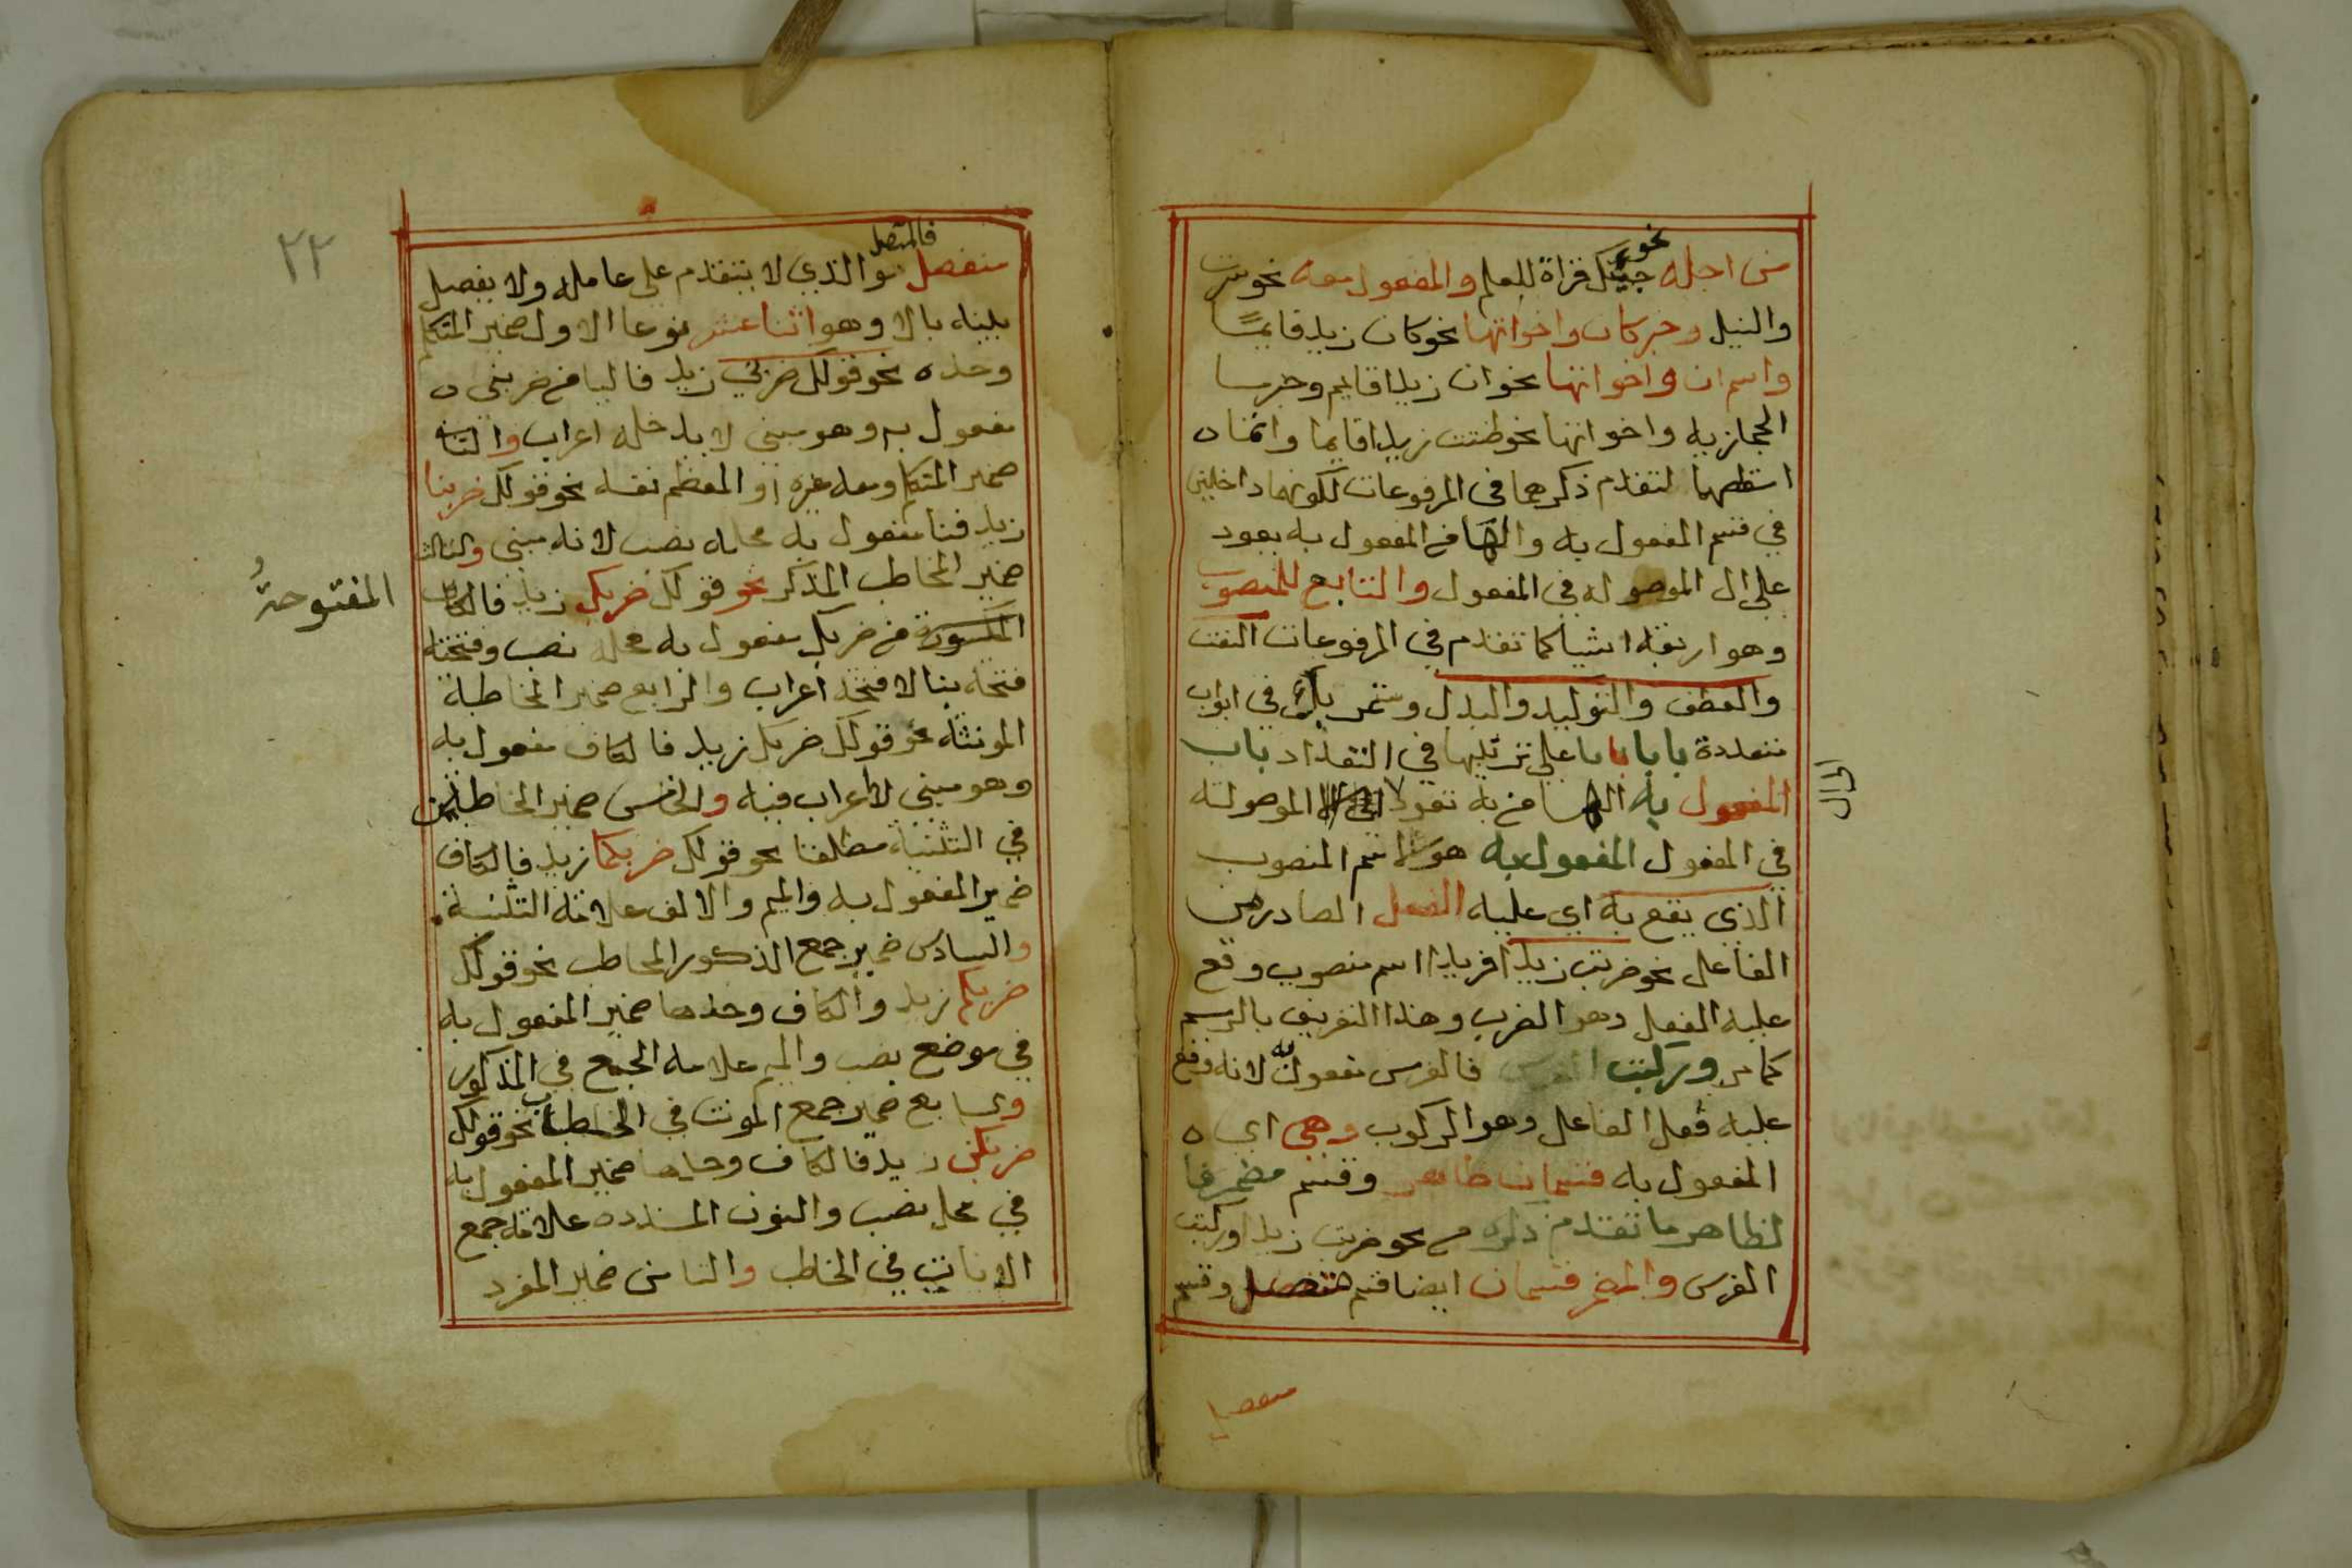 من اجله نحو جيتك قراة للعلم والمفعول معه نحو سرت
والنيل وخبر كان واخواتها نحو كان زيد قايمًا
واسم ان واخواتها نحو ان زيدا قايم وخبر ما
الحجازيه واخواتها نحو ظننت زيدا قايما وانما ه
اسقطهما لتقدم ذكرهما في المرفوعات لكونهما داخلين
في قسم المفعول به والها في المفعول به يعود
علي ال الموصوله في المفعول والتابع للمنصوب
وهو اربعه اشيا كما تقدم في المرفوعات النعت
والعطف والتوكيد والبدل وستمر بك في ابواب
متعددة بابا بابا علي ترتيبها في التعداد باب
المفعول به الها في به تعود الي ال الموصولة
في المفعول المفعول به هو الاسم المنصوب
الذي يقع به اي عليه الفعل الصادر من
الفاعل نحو ضربت زيدا فزيدا اسم منصوب وقع
عليه الفعل وهو الضرب وهذا التعريف بالرسم
كما مر وركبت الفرس فالفرس مفعول به لانه وقع
عليه فعل الفاعل وهو الركوب وهي اي ه
المفعول به قسمان ظاهر وقسم مضمر فا
لظاهر ما تقدم ذكره في نحو ضربت زيدا وركبت
الفرس والمضمر قسمان ايضا قسم متصل وقسم
منفصل
الي ال
٢٢
منفصل فالمتصل هو الذي لا يتقدم علي عامله ولا يفصل
بينه بالا وهو اثنا عشر نوعا الاول ضمير المتكلم
وحده نحو قولك ضربني زيد فاليا في ضربني ه
مفعول به وهو مبني لا يدخله اعراب والثاني
ضمير المتكلم ومعه غيره او المعظم نفسه نحو قولك ضربنا
زيد فنا مفعول به محله نصب لانه مبني والثالث
ضمير المخاطب المذكر نحو قولك ضربك زيد فالكاف
المكسورة في ضربك مفعول به محله نصب وفتحته
المفتوحةُ
فتحة بنا لا فتحة اعراب والرابع ضمير المخاطبة
المونثه نحو قولك ضربك زيد فالكاف مفعول به
وهو مبني لا اعراب فيه والخامس ضمير المخاطبين
في التثنية مطلقا نحو قولك ضربكما زيد فالكاف
ضمير المفعول به والميم والالف علامة التثنية
والسادس ضمير جمع الذكور المخاطب نحو قولك
ضربكم زيد والكاف وحدها ضمير المفعول به
في موضع نصب والميم علامه الجمع في المذكور
والسابع ضمير جمع المونث في المخاطب نحو قولك
ضربكن زيد فالكاف وحدها ضمير المفعول به
في محل نصب والنون المشدده علامة جمع
الاناث في المخاطب والثامن ضمير المفرد